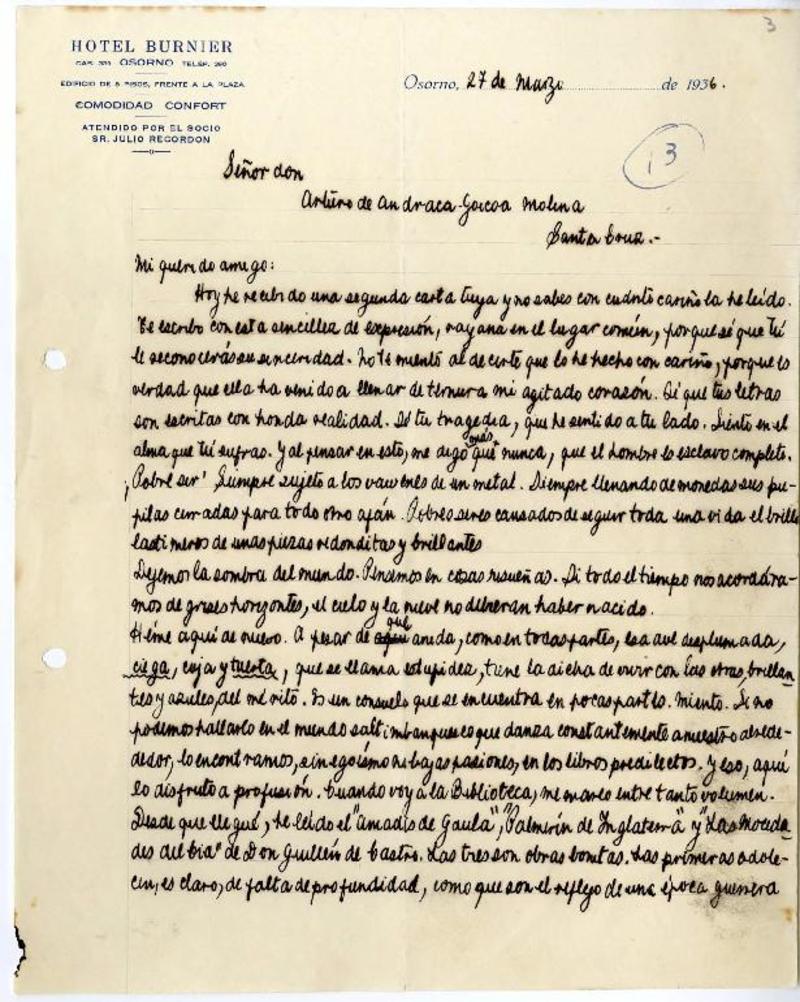 3
HOTEL BURNIER
CAS. 331 OSORNO TELEF. 290
EDIFICIO DE 5 PISOS, FRENTE A LA PLAZA
COMODIDAD CONFORT
ATENDIDO POR EL SOCIO
SR. JULIO RECORDON
Osorno, 27 de Marzo de 1936.
13
Señor don
Arturo de Andraca-Goicoa Molina
Santa Cruz.-
Mi querido amigo:
Hoy he recibido una segunda carta tuya y no sabes con cuánto cariño la he leído.
Te escribo con esta sencillez de expresión, rayana en el lugar común, porque sé que tú
le reconocerás su sinceridad. No te miento al decirte que lo he hecho con cariño, porque es
verdad que ella ha venido a llenar de ternura mi agitado corazón. Sí que tus letras
son escritas con honda realidad. Es tu tragedia, que he sentido a tu lado. Siento en el
alma que tú sufras. Y al pensar en esto, me digo más que nunca, que el hombre es esclavo completo.
¡Pobre ser! Siempre sujeto a los vaivenes de un metal. Siempre llenando de monedas sus pu-
pilas cerradas para todo otro afán. Pobres seres cansados de seguir toda una vida el brillo
lastimeros de unas piezas redonditas y brillantes
Dejemos la sombra del mundo. Pensemos en cosas risueñas. Si todo el tiempo nos acordára-
mos de grises horizontes, el cielo y la nieve no debieran haber nacido.
Héme aquí de nuevo. A pesar de que anida, como en todas partes, esa ave desplumada,
ciega, coja y tuerta, que se llama estupidez, tiene la dicha de vivir con las otras, brillan
tes y azules, del mérito. Es un consuelo que se encuentra en pocas partes. Miento. Si no
podemos hallarlo en el mundo saltimbanquesco que danza constantemente a nuestro alrede-
dedor, lo encontramos, sin egoísmo ni bajas pasiones, en los libros predilectos. Y eso, aquí
lo disfruto a profusión. Cuando voy a la Biblioteca, me mareo entre tanto volumen.
Desde que llegué, he leído el "Amadís de Gaula", "Palmerín de Inglaterra" y "Las Moceda
des del Cid" de Don Guillén de Castro. Las tres son obras bonitas. Las primeras adole-
cen, es claro, de falta de profundidad, como que son el reflejo de una época guerrera